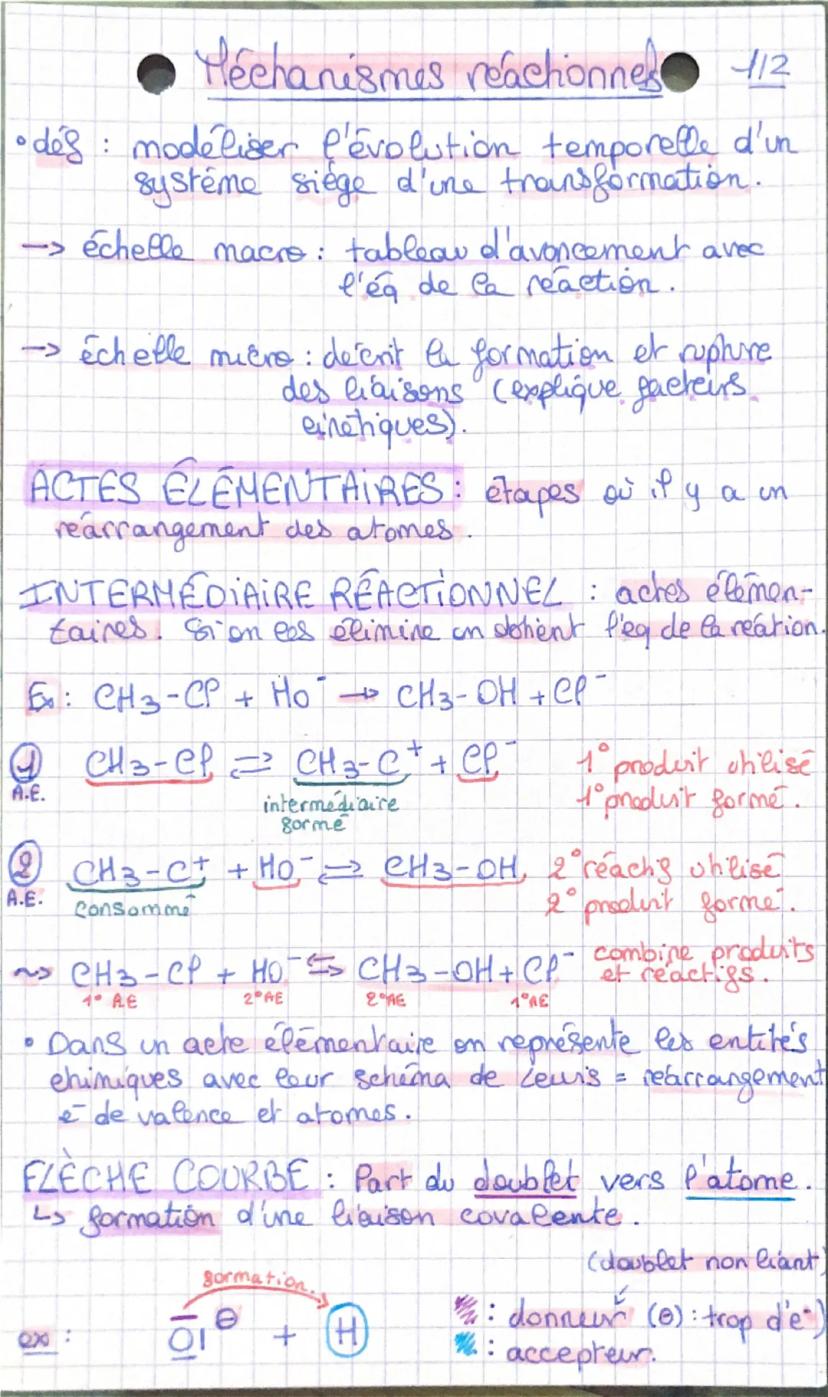 Méchanismes réactionnels 1/2
• déf : modéliser l'évolution temporelle d'un
système siège d'une transformation.
→ échelle macro : tableau d'avancement avec
l'éq de la réaction.
→ échelle micro : décrit la formation et rupture
des liaisons (explique facteurs
cinétiques).
ACTES ÉLÉMENTAIRES : étapes où il y a un
réarrangement des atomes.
INTERMÉDIAIRE RÉACTIONNEL : actes élémen-
taires. Si on les élimine on obtient l'eq de la réation.
Ex : CH3-Cl + HO⁻ → CH3-OH + Cl⁻
① CH3-Cl ⇌ CH3-C⁺ + Cl⁻ 1° produit utilisé
A.E. intermédiaire 1° produit formé.
formé
② CH3-C⁺ + HO⁻ ⇌ CH3-OH 2° réactif utilisé
A.E. consommé 2° produit formé.
⇝ CH3-Cl + HO⁻ ⇆ CH3-OH + Cl⁻ combine produits
et réactifs.
1° AE 2° AE 2° AE 1° AE
• Dans un acte élémentaire on représente les entités
chimiques avec leur schéma de Lewis = réarrangement
e⁻ de valence et atomes.
FLÈCHE COURBE : Part du doublet vers l'atome.
↳ formation d'une liaison covalente.
(doublet non liant)
formation
ex : O| ⊖ + H : donneur (⊖) : trop d'e⁻)
: accepteur.